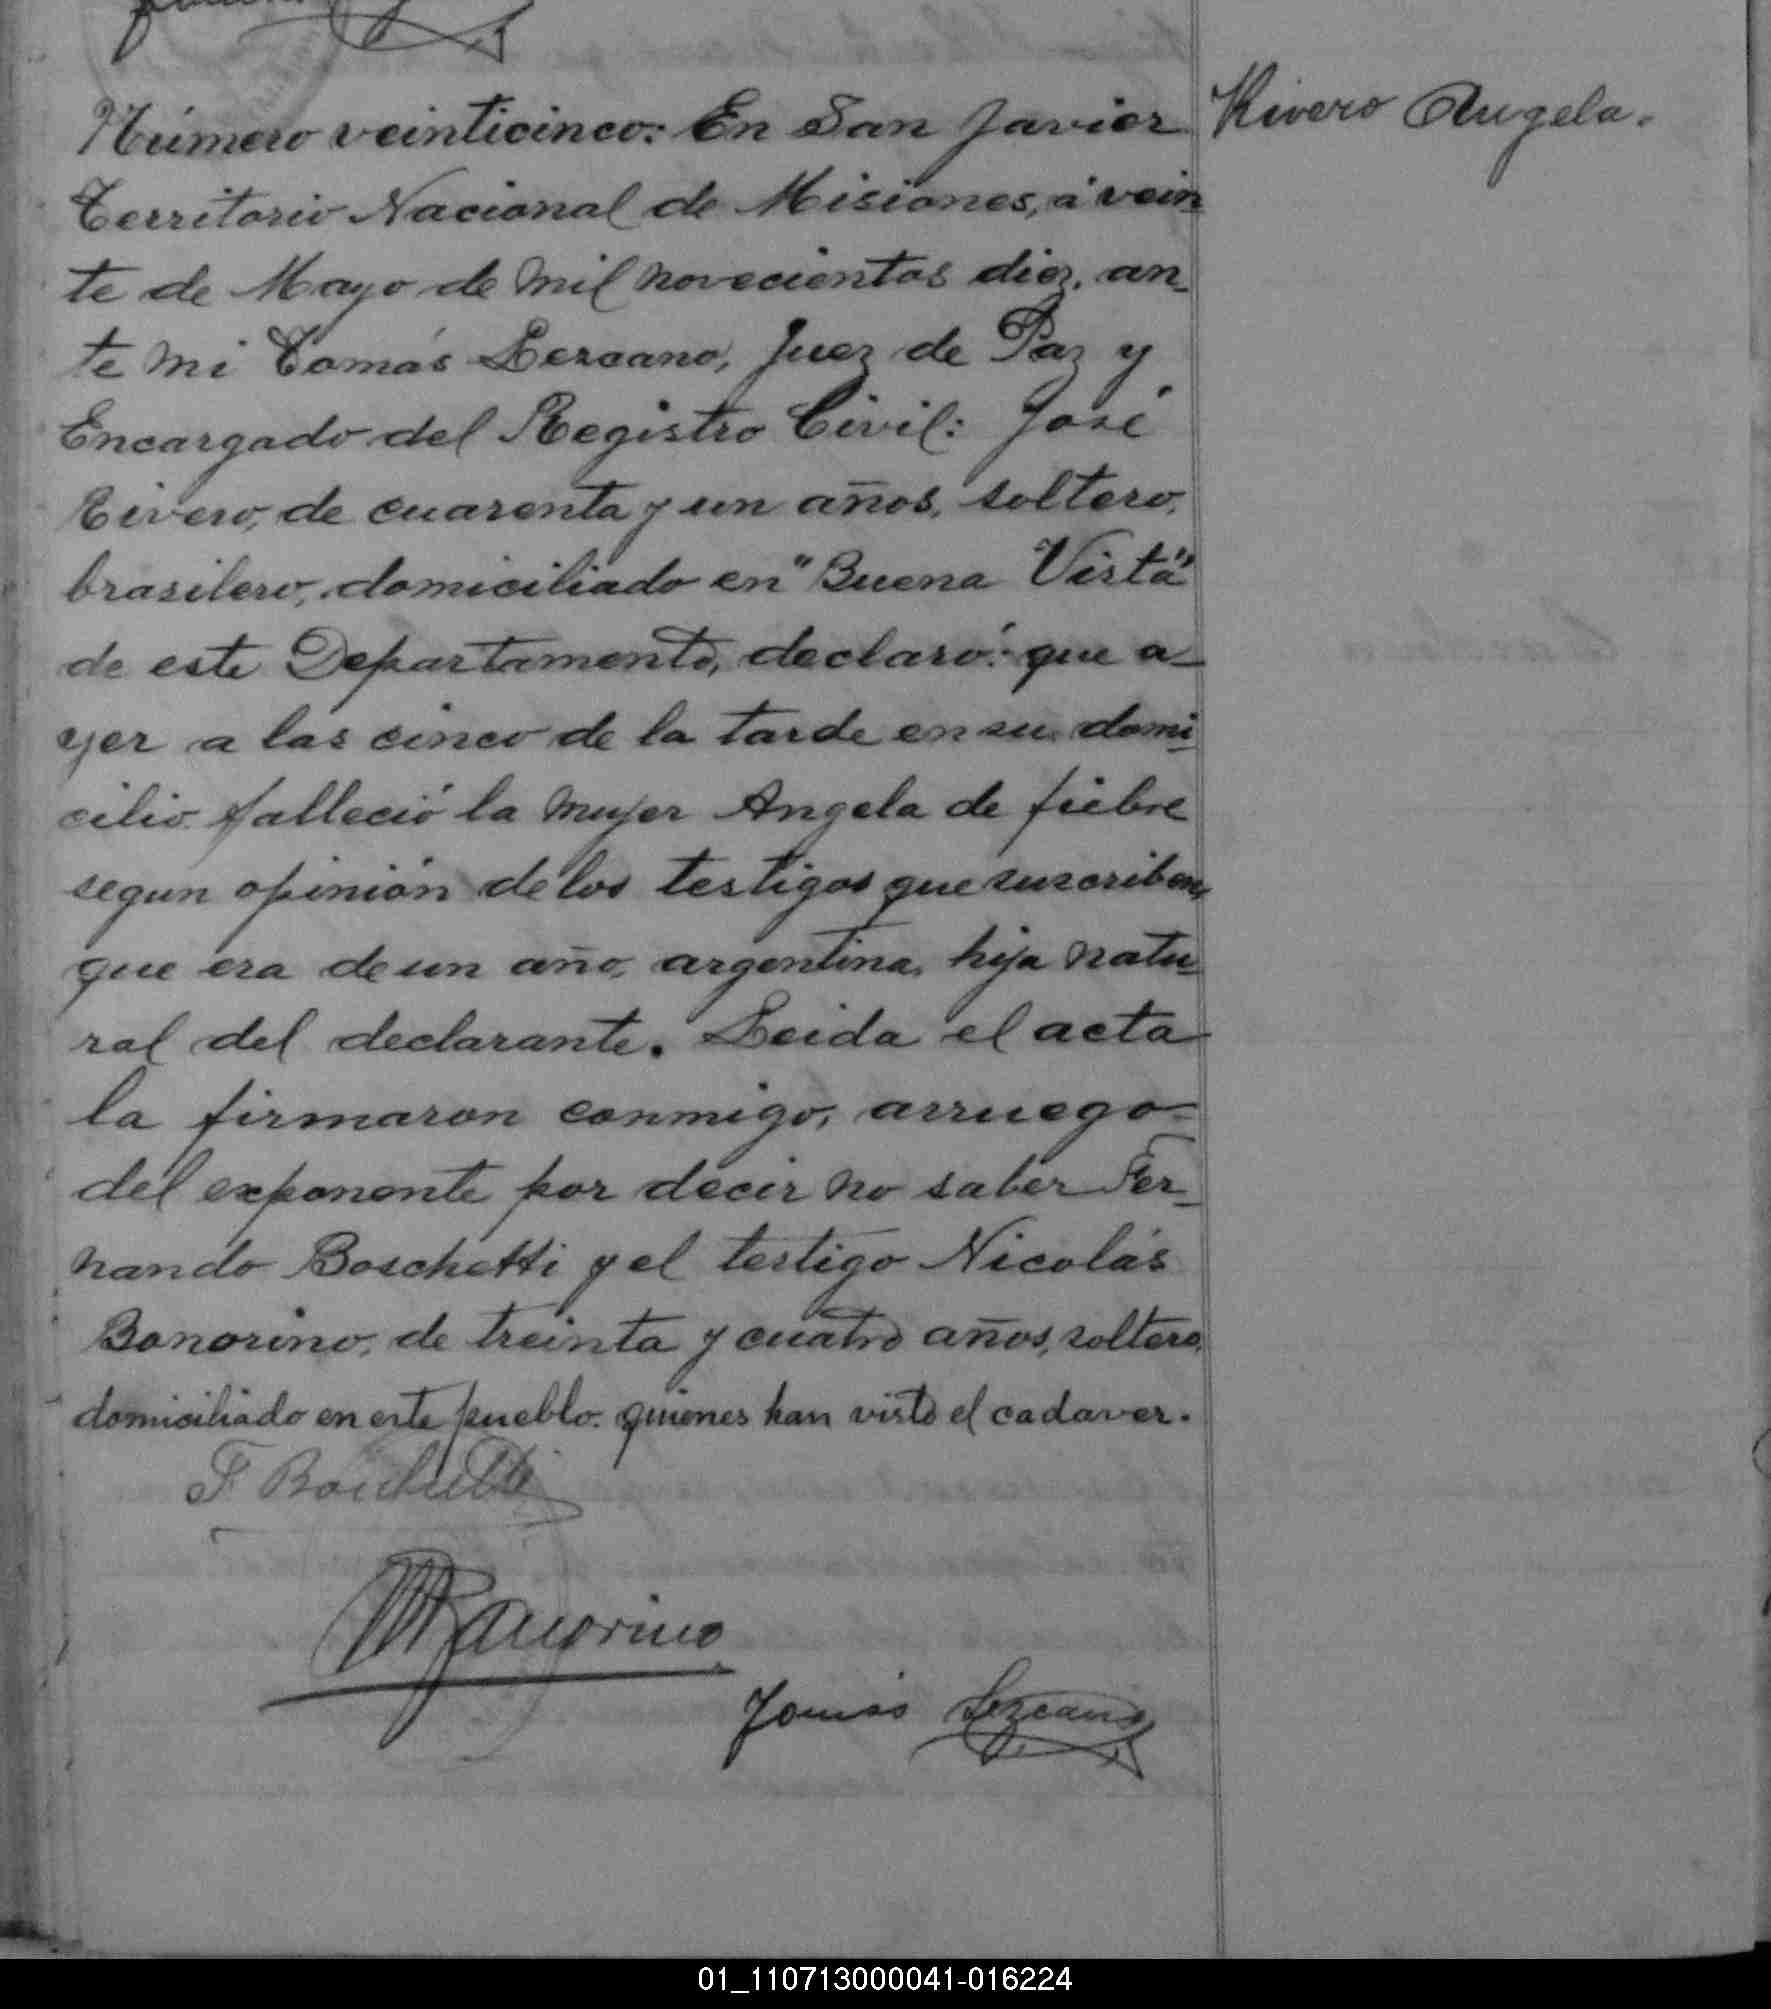 Número veinticinco: En San Javier
Rivero Angela.
Territorio Nacional de Misiones, á vein
te de Mayo de mil novecientos diez, an-
te mi Tomás Lezcano, Juez de Paz y
Encargado del Registro Civil: José
Rivero, de cuarenta y un años, soltero,
brasilero, domiciliado en "Buena Vista"
de este Departamento, declaró: que a-
yer a las cinco de la tarde en su domi-
cilio falleció la mujer Angela de fiebre
segun opinión de los testigos que suscriben,
que era de un año, argentina, hija natu-
ral del declarante. Leida el acta
la firmaron conmigo, arruego
del exponente por decir no saber Fer-
nando Boschetti y el testigo Nicolás
Bonorino, de treinta y cuatro años, soltero,
domiciliado en este pueblo. quienes han visto el cadaver.
F Boschetti
NBonorino
Tomás Lezcano
01_110713000041-016224